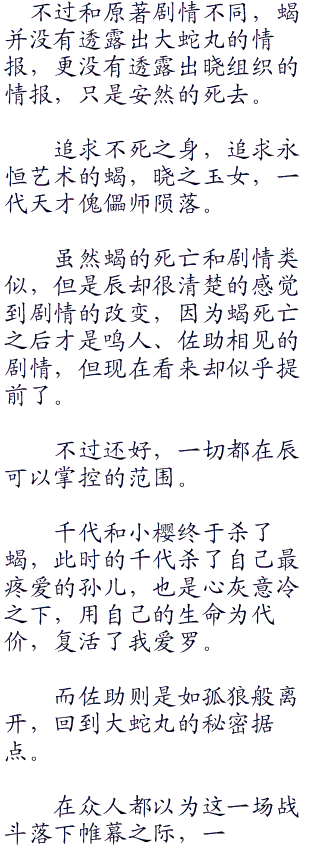 不过和原著剧情不同，蝎
并没有透露出大蛇丸的情
报，更没有透露出晓组织的
情报，只是安然的死去。
追求不死之身，追求永
恒艺术的蝎，晓之玉女，一
代天才傀儡师陨落。
虽然蝎的死亡和剧情类
似，但是辰却很清楚的感觉
到剧情的改变，因为蝎死亡
之后才是鸣人、佐助相见的
剧情，但现在看来却似乎提
前了。
不过还好，一切都在辰
可以掌控的范围。
千代和小樱终于杀了
蝎，此时的千代杀了自己最
疼爱的孙儿，也是心灰意冷
之下，用自己的生命为代
价，复活了我爱罗。
而佐助则是如孤狼般离
开，回到大蛇丸的秘密据
点。
在众人都以为这一场战
斗落下帷幕之际，一